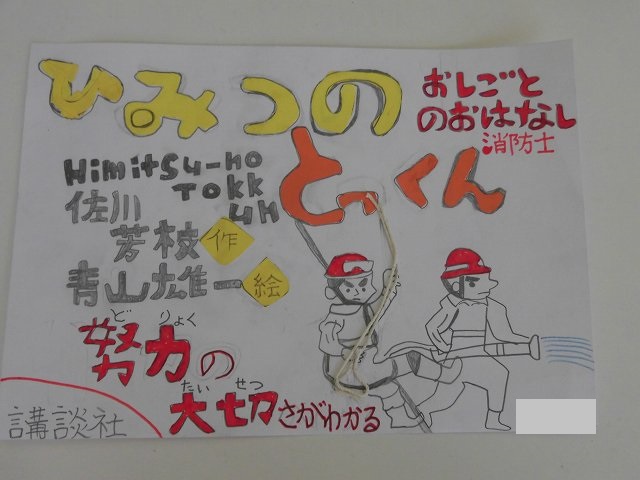 ひみつの
とっくん
おしごと
のおはなし
消防士
Himitsu-no
Tokk
un
佐川
芳枝 作
青山雄一 絵
どりょく
努力の
たいせつ
大切さがわかる
講談社